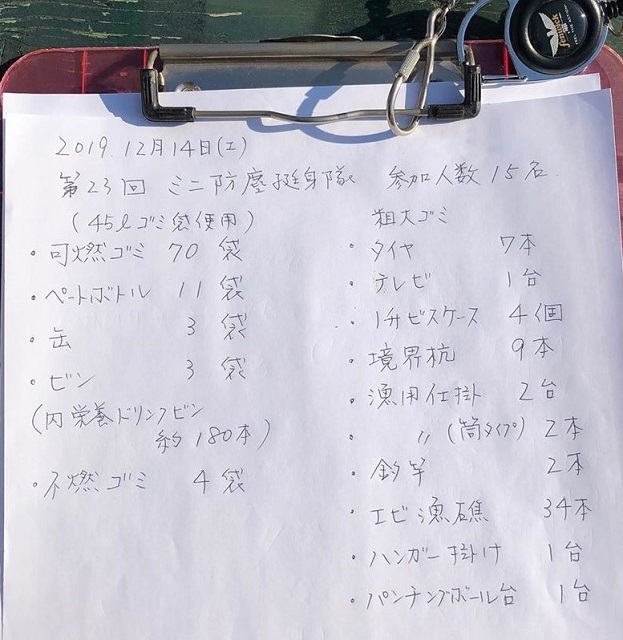 2019.12月14日(土)
第23回 ミニ防塵挺身隊 参加人数15名
(45ℓゴミ袋使用)
・可燃ゴミ 70 袋
・ペットボトル 11 袋
・缶 3 袋
・ビン 3 袋
(内 栄養ドリンクビン
約180本)
・不燃ゴミ 4 袋
粗大ゴミ
・タイヤ 7本
・テレビ 1台
・1升ビンケース 4個
・境界杭 9本
・漁用仕掛 2台
・〃(筒タイプ) 2本
・釣竿 2本
・エビ漁礁 34本
・ハンガー掛け 1台
・パンチングボール台 1台